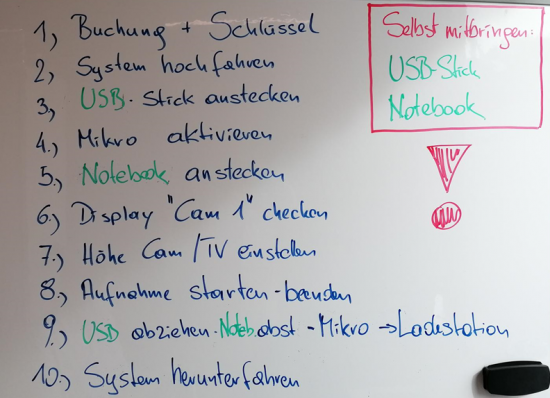 1, Buchung + Schlüssel
2, System hochfahren
3, USB-Stick anstecken
4., Mikro aktivieren
5., Notebook anstecken
6., Display "Cam 1" checken
7., Höhe Cam/TV einstellen
8., Aufnahme starten-beenden
9., USB abziehen. Noteb. abst - Mikro → Ladestation
10., System herunterfahren
Selbst mitbringen:
USB-Stick
Notebook
!